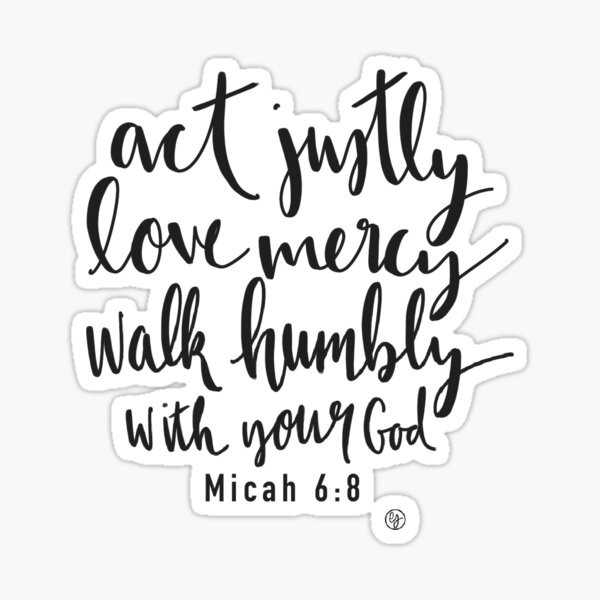 act justly
love mercy
walk humbly
with your God
Micah 6:8